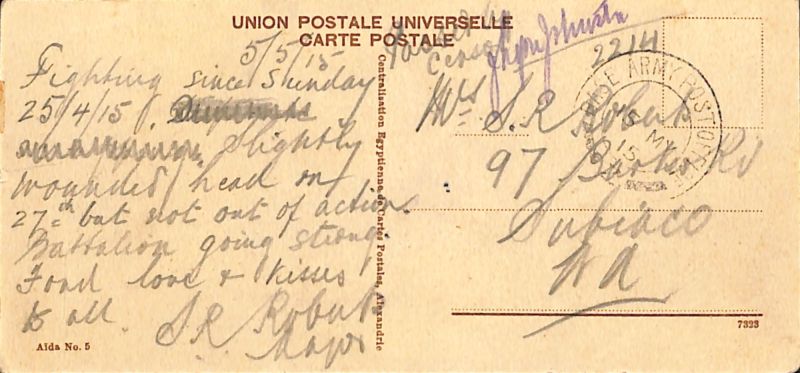 UNION POSTALE UNIVERSELLE
CARTE POSTALE
5/5/15
Fighting since Sunday
25/4/15.
Slightly
wounded head on
27th but not out of action.
Battalion going strong.
Fond love & kisses
to all. S R Roberts
Major
Aïda No. 5
Centralisation Egyptienne de Cartes Postales, Alexandrie
Passed by
Censor
Johnston
2214
ARMY POST OFFICE
MY
15
Mrs S. R Roberts
97 Barker Rd
Subiaco
W A
7323